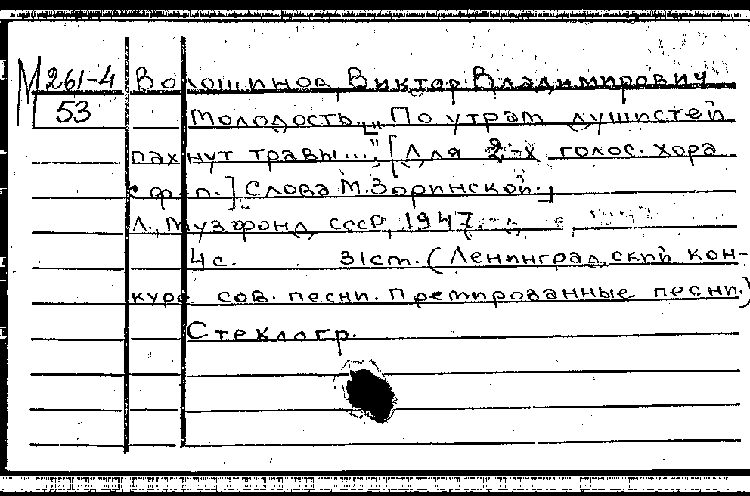 М 261-4 Волошинов, Виктор Владимирович
53 Молодость. „По утрам душистей
пахнут травы...“ [Для 2-х голос. хора
с ф.-п.] Слова М. Зоринской.
Л., Музфонд СССР, 1947.
4 с. 31 см. (Ленинградский кон-
курс сов. песни. Премированные песни.)
Стеклогр.